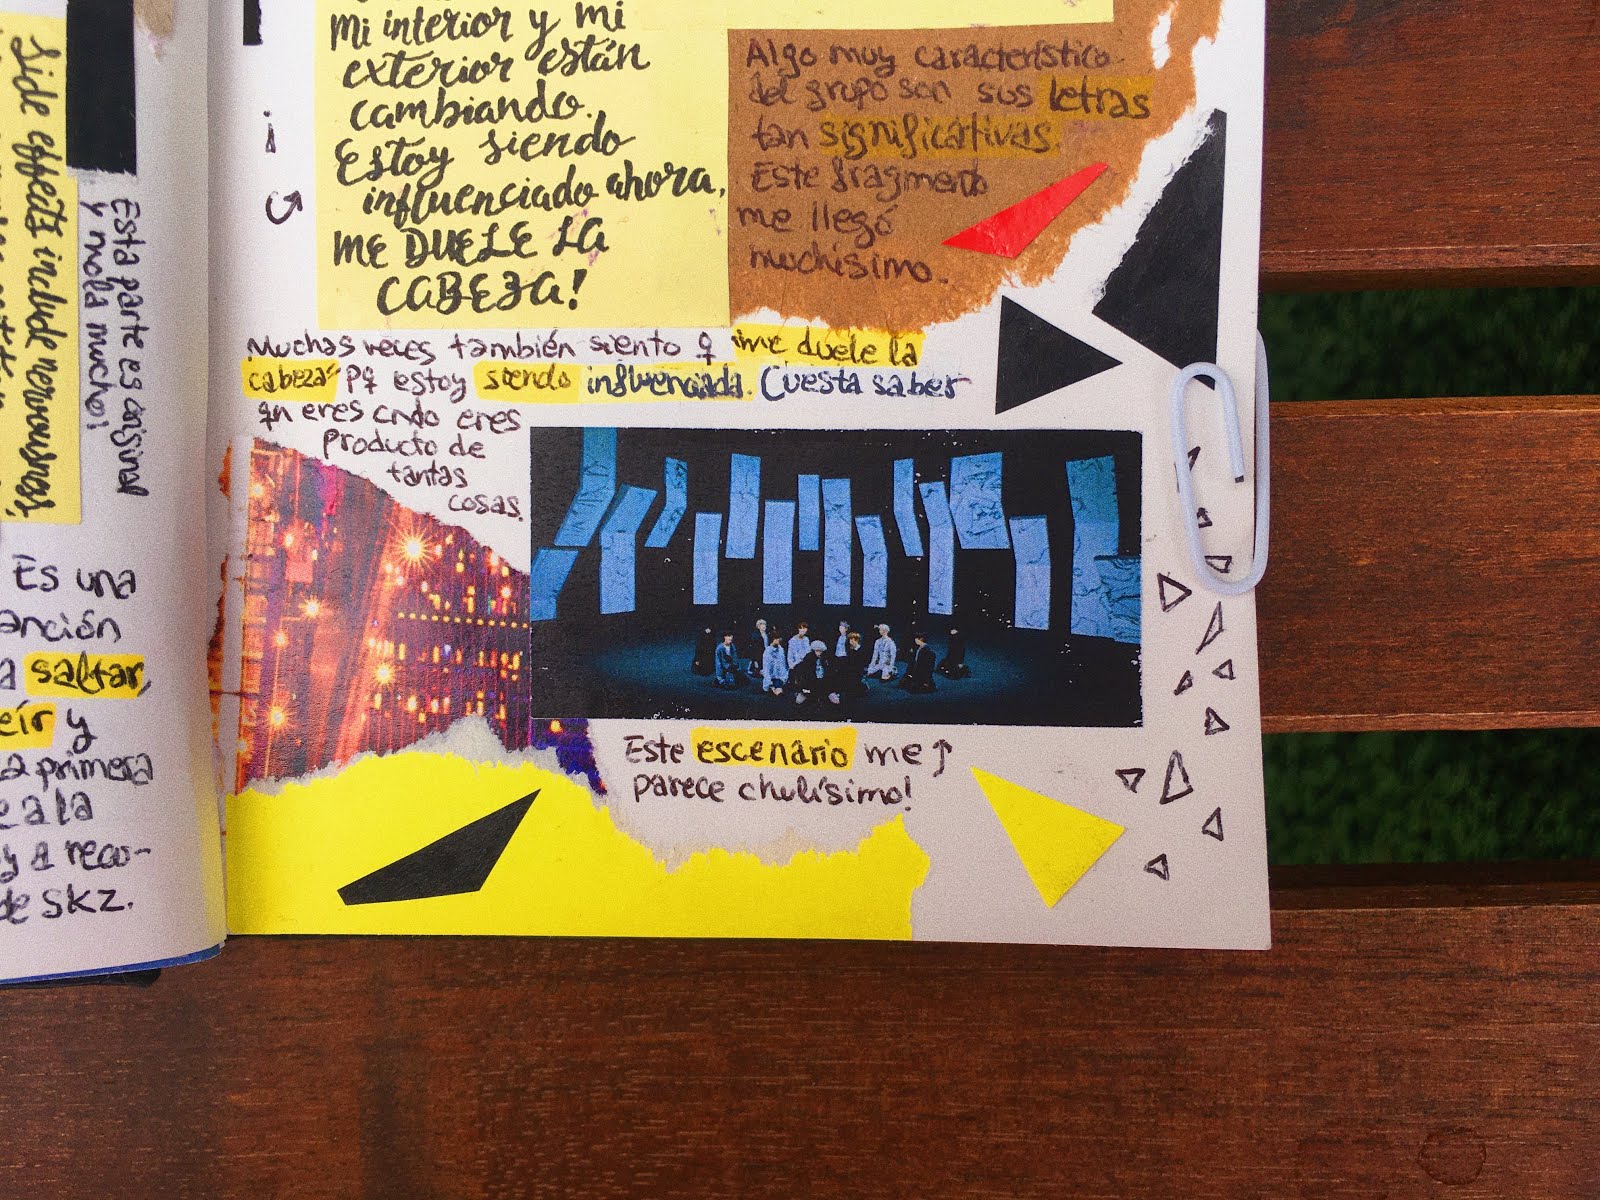 Side effects include nervousness,
Esta parte es original
y mola mucho!
Es una
anción
a saltar,
eír y
a primera
e a la
y a reco-
de SKZ.
Mi interior y mi
exterior están
cambiando.
Estoy siendo
influenciado ahora,
ME DUELE LA
CABEZA!
Algo muy característico
del grupo son sus letras
tan significativas.
Este fragmento
me llegó
muchísimo.
Muchas veces también siento q "me duele la
cabeza" pq estoy siendo influenciada. Cuesta saber
qn eres cndo eres
producto de
tantas
cosas.
Este escenario me
parece chulísimo!